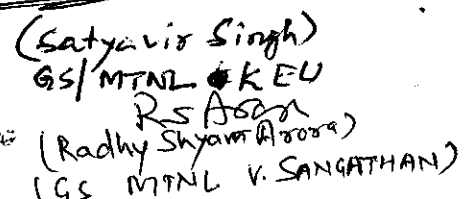 (Satyavir Singh)
GS/MTNL KEU
RS Arora
(Radhy Shyam Arora)
(GS MTNL V. SANGATHAN)